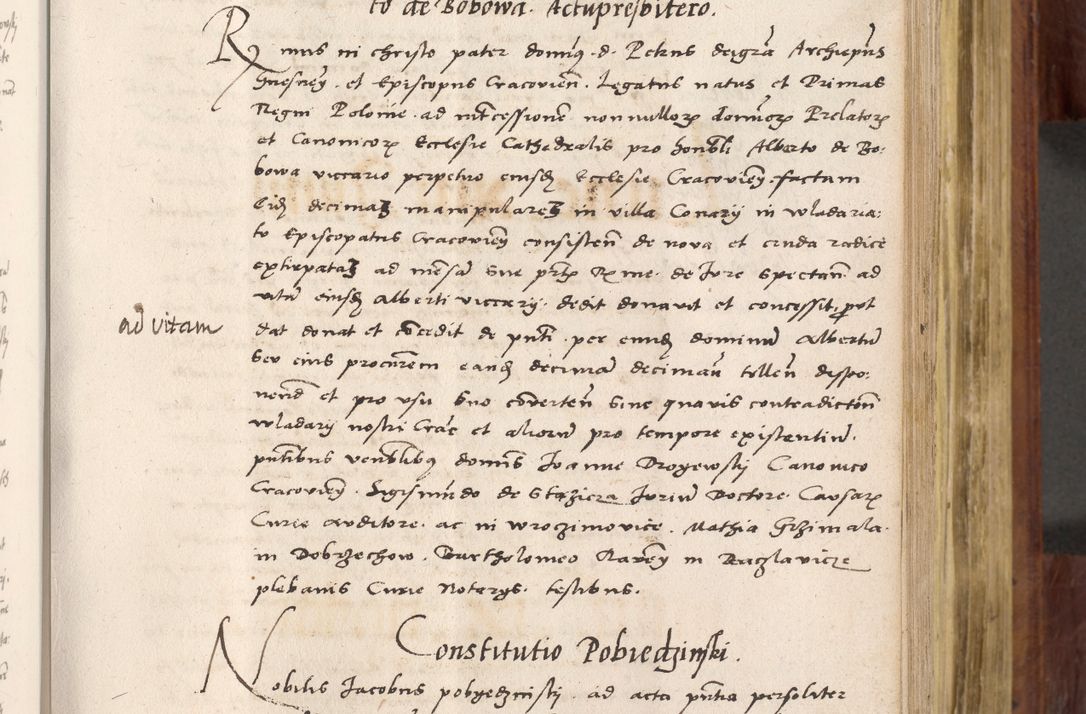 to de Bobowa. Actupresbitero.
Rmus in christo pater domīq d. Petrus deigrā Archiepūs
Gnesneñ. et Episcopus Cracovieñ. Legatus natus et Primas
Regni Polonie. ad intcessionē nonnullorꝝ domorꝝ Prelatorꝝ
et Canonicorꝝ Ecclesie Cathedralis pro honbli Alberto de Bo:
bowa viccario perpetuo eiusdē Ecclesie Cracovieñ. factam
decimaꝫ manipulareꝫ in villa Conary in wladaria:
tu Episcopatus Cracovieñ consisteñ de nova et cruda radice
extirpataꝫ ad mēsā sue prtꝭ Rme. de Jure spectañ ad
vitā eiusdē Alberti viccarij. dedit donavit et concessit prout
dat donat et cōcedit de pñti. per eundē dominū Albertū
seu eius procrem eandē decimā decimañ tolleñ dispo:
nend et pro usu suo cōverteñ sine quavis contradictōn
wladarij nostri Crac et aliorū pro tempore existentiū.
pntibus venblibꝰ dominis Joanne Drogewsky Canonico
Cracovieñ. Sigismūdo de Stęzicza Juriū Doctore. Causarꝝ
Curie auditore. ac in wroczimovice. Mathia Grzimala.
in Dobrzechow. Bartholomeo in Raczlavicze
plebanis Curie Notarys. testibus.
ad vitam
Constitutio Pobiedzinski.
Nobilis Jacobus pobyedzinsky ad acta pñtia personliter